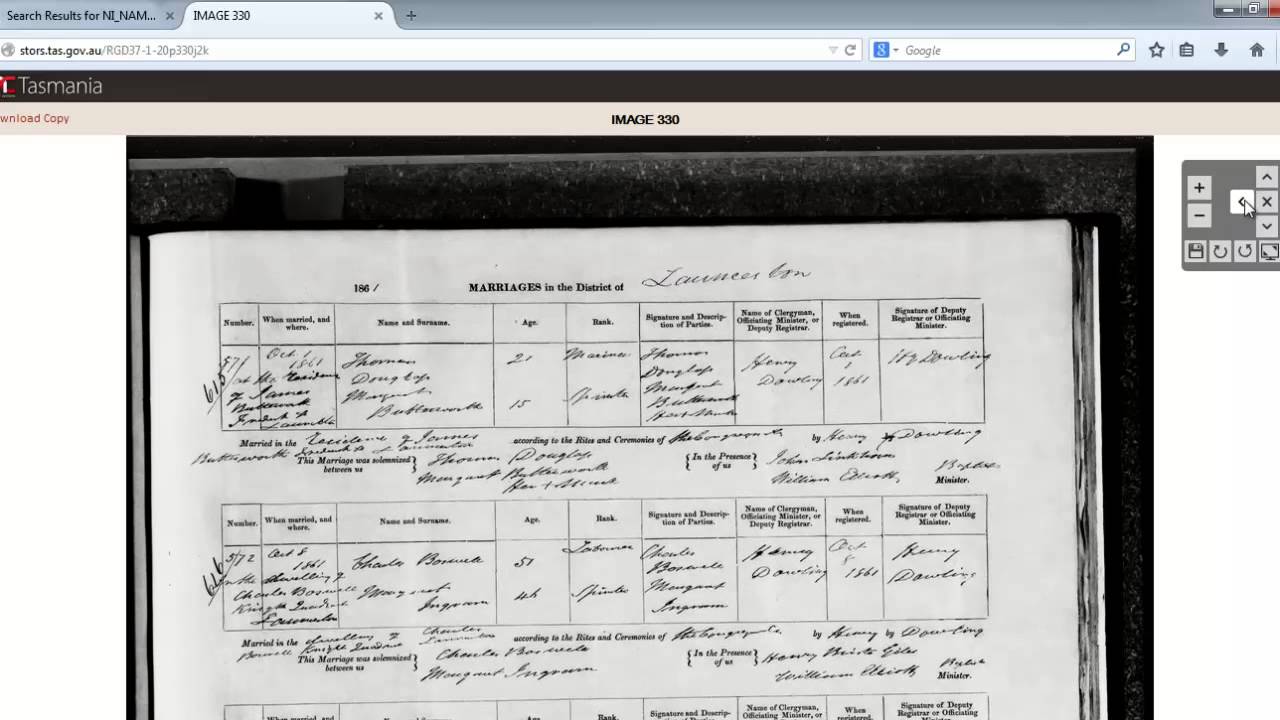 Search Results for NI_NAM...
IMAGE 330
stors.tas.gov.au/RGD37-1-20p330j2k
Google
Tasmania
wnload Copy
IMAGE 330
1861 MARRIAGES in the District of Launceston
Number. When married, and where. Name and Surname. Age. Rank. Signature and Description of Parties. Name of Clergyman, Officiating Minister, or Deputy Registrar. When registered. Signature of Deputy Registrar or Officiating Minister.
571 Oct 1 Thomas 21 Mariner Thomas Henry Oct Hy Dowling
615 1861 Douglass Douglass Dowling 1
at the residence Margaret 15 Spinster Margaret 1861
of James Butterworth Butterworth
Butterworth Her Mark
Launceston
Married in the residence of James according to the Rites and Ceremonies of by Henry Dowling
Butterworth Launceston
This Marriage was solemnized between us Thomas Douglass In the Presence of us John
Margaret Butterworth William Elliott Minister.
Her + Mark
Number. When married, and where. Name and Surname. Age. Rank. Signature and Description of Parties. Name of Clergyman, Officiating Minister, or Deputy Registrar. When registered. Signature of Deputy Registrar or Officiating Minister.
572 Oct 8 Charles Boswell 51 Labourer Charles Henry Oct Henry
616 1861 Boswell Dowling 8 Dowling
in the dwelling of Margaret 46 Spinster Margaret 1861
Charles Boswell Ingram Ingram
Launceston
Married in the dwelling of Charles according to the Rites and Ceremonies of by Henry Dowling
Boswell Launceston
This Marriage was solemnized between us Charles Boswell In the Presence of us Henry Giles
Margaret Ingram William Elliott Minister.
Number. When married, and Name and Surname. Age. Rank. Signature and Descrip- Name of Clergyman, Officiating Minister, or When Signature of Deputy Registrar or Officiating